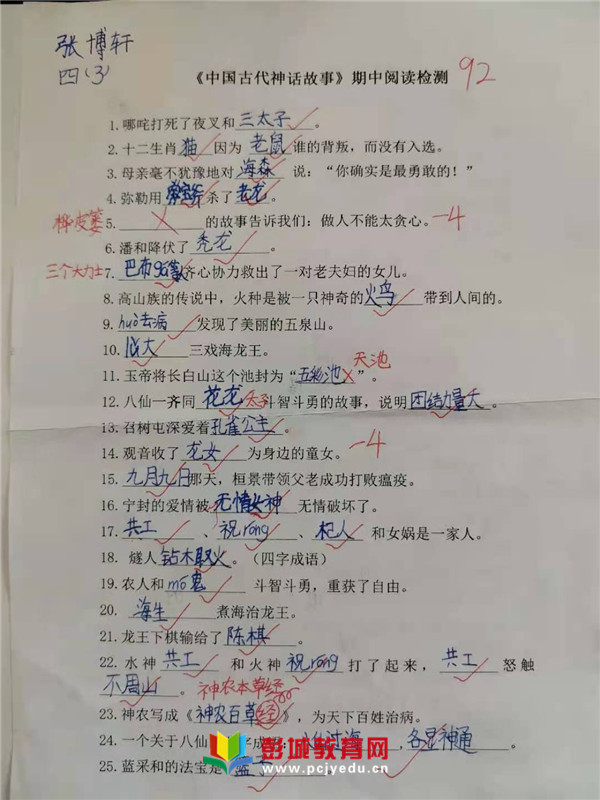 张博轩
四(3)
《中国古代神话故事》期中阅读检测 92
1. 哪咤打死了夜叉和三太子。
2. 十二生肖猫因为老鼠谁的背叛，而没有入选。
3. 母亲毫不犹豫地对海森说：“你确实是最勇敢的！”
4. 弥勒用杀了老龙。
桦皮篓 5. 的故事告诉我们：做人不能太贪心。 -4
6. 潘和降伏了秃龙。
三个大力士 7. 巴布齐心协力救出了一对老夫妇的女儿。
8. 高山族的传说中，火种是被一只神奇的火鸟带到人间的。
9. huò去病发现了美丽的五泉山。
10. 大三戏海龙王。
天池
11. 玉帝将长白山这个池封为“五彩池”。
12. 八仙一齐同花龙太子斗智斗勇的故事，说明团结力量大
13. 召树屯深爱着孔雀公主。
14. 观音收了龙女为身边的童女。 -4
15. 九月九日那天，桓景带领父老成功打败瘟疫。
16. 宁封的爱情被无情女神无情破坏了。
17. 共工、祝róng、杞人和女娲是一家人。
18. 燧人钻木取火。（四字成语）
19. 农人和mó鬼斗智斗勇，重获了自由。
20. 海生煮海治龙王。
21. 龙王下棋输给了陈棋。
22. 水神共工和火神祝róng打了起来，共工怒触
不周山。 神农本草经
23. 神农写成《神农百草经》，为天下百姓治病。
24. 一个关于八仙字成过海，各显神通
25. 蓝采和的法宝是篮子
彭城教育网
www.pcjyedu.cn